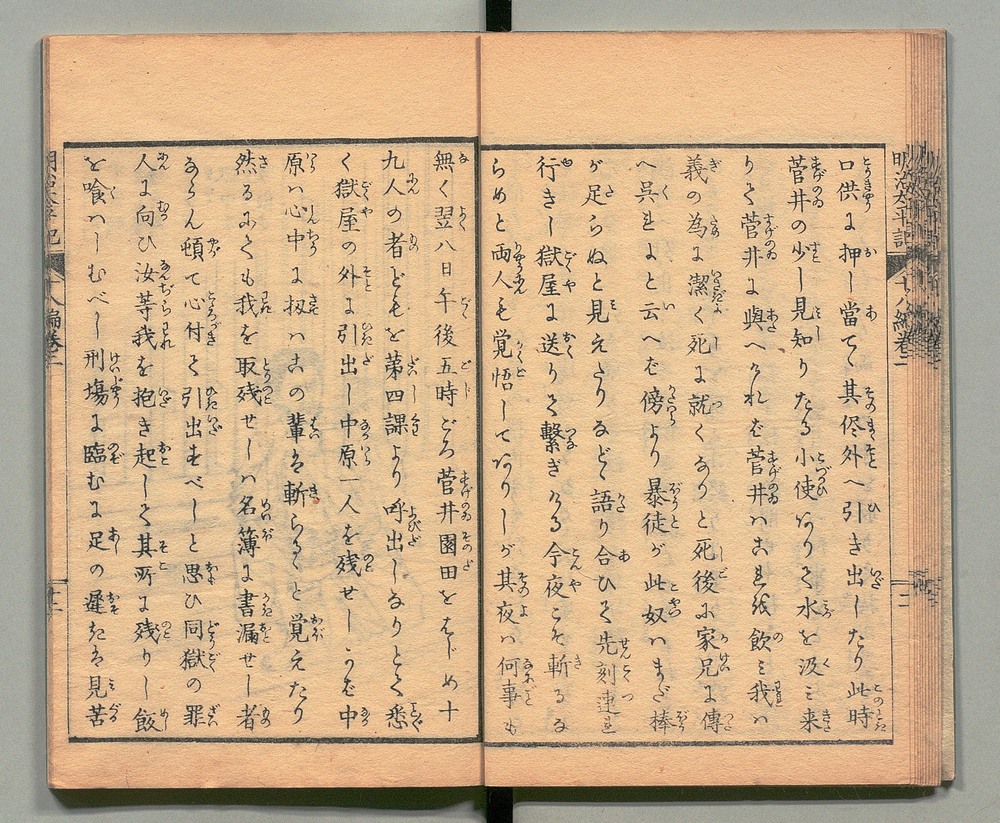 口供に押し當て其侭外へ引き出したり此時
菅井の少し見知りたる小使ありて水を汲み来
りて菅井に與へければ菅井ハこれを飲み我ハ
義の為に潔く死に就くなりと死後に家兄に傳
へ呉よと云へば傍より暴徒が此奴ハまだ棒
が足らぬと見えたりなど語り合ひて先刻連れ
行きし獄屋に送りて繋ぎける今夜こそ斬るな
らめと両人も覚悟してありしが其夜ハ何事も
明治太平記 十八編巻二
無く翌八日午後五時ごろ菅井園田をはじめ十
九人の者どもを第四課より呼出しなりとて悉
く獄屋の外に引出し中原一人を残せしかば中
原ハ心中に扨ハこの輩を斬らるゝと覚えたり
然るにても我を取残せしハ名簿に書漏せし者
ならん頓て心付て引出すべしと思ひ同獄の罪
人に向ひ汝等我を抱き起して其所に残りし飯
を喰ハしむべし刑場に臨むに足の遅きは見苦
明治太平記 十八編巻二